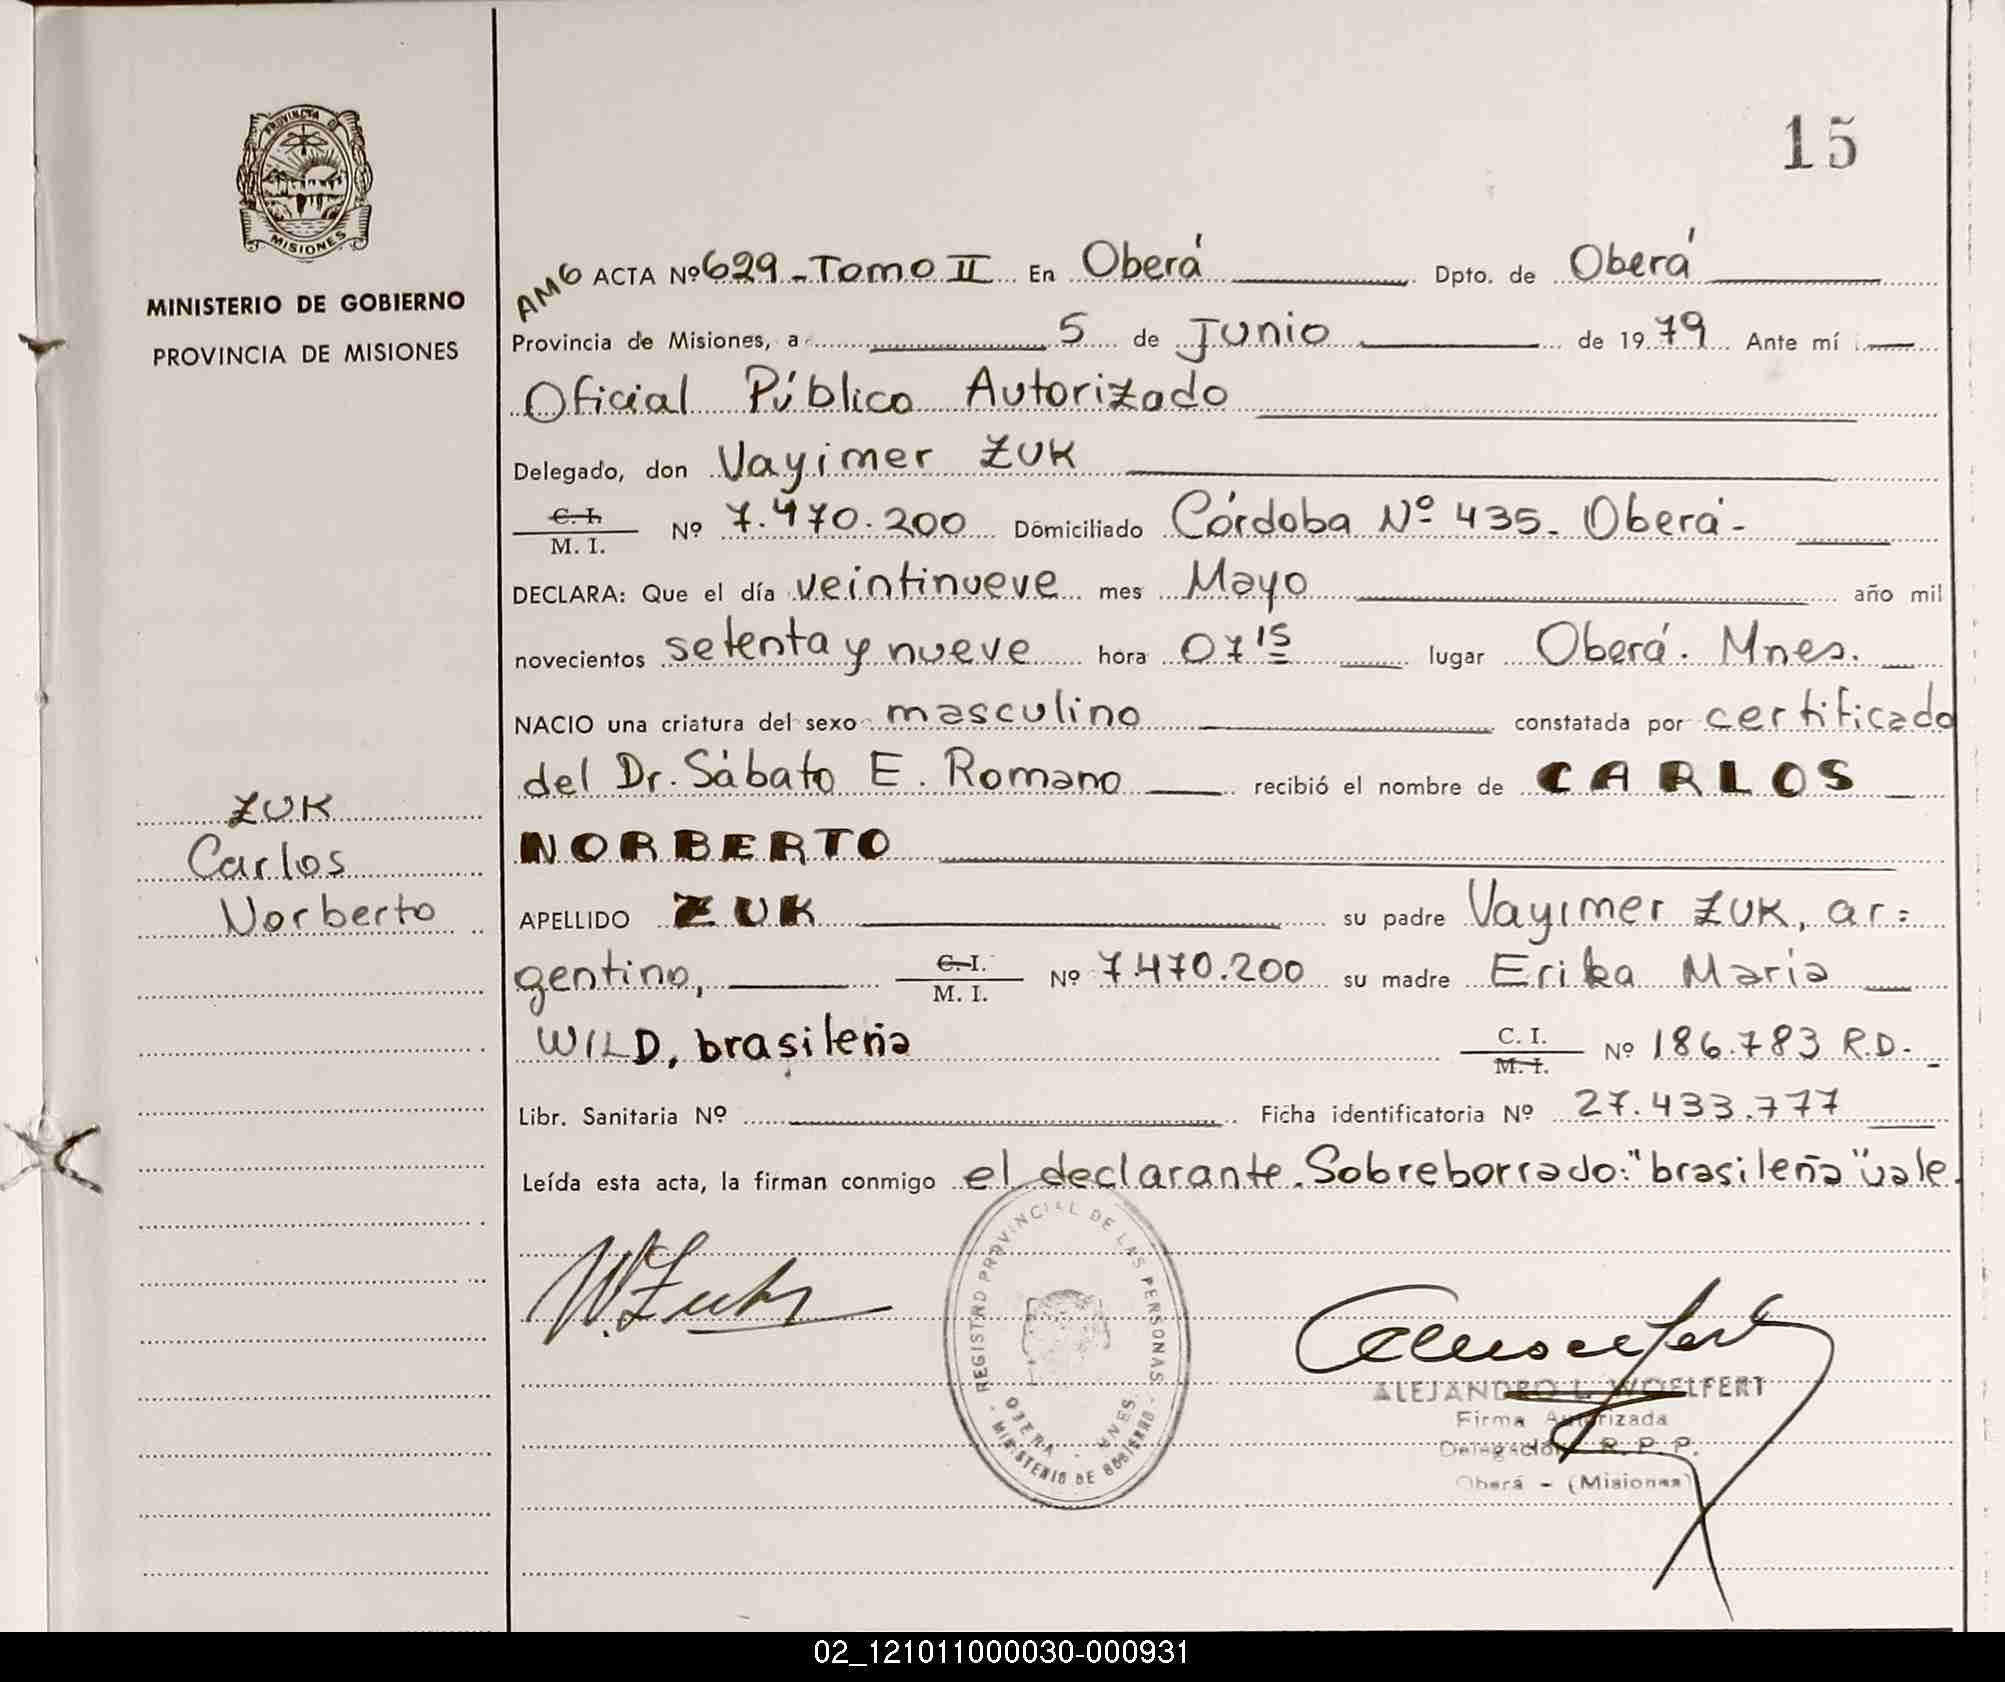 PROVINCIA DE
MISIONES
MINISTERIO DE GOBIERNO
PROVINCIA DE MISIONES
15
AMG ACTA Nº 629 - Tomo II En Oberá Dpto. de Oberá
Provincia de Misiones, a 5 de Junio de 1979 Ante mí
Oficial Público Autorizado
Delegado, don Vayimer ZUK
C. I. M. I. Nº 7.470.200 Domiciliado Córdoba Nº 435. Oberá -
DECLARA: Que el día veintinueve mes Mayo año mil
novecientos setenta y nueve hora 07 15 lugar Oberá. Mnes.
NACIO una criatura del sexo masculino constatada por certificado
del Dr. Sábato E. Romano recibió el nombre de CARLOS
NORBERTO
APELLIDO ZUK su padre Vayimer ZUK, ar=
gentino, C. I. M. I. Nº 7.470.200 su madre Erika Maria
WILD, brasileña C. I. M. I. Nº 186.783 R.D.-
Libr. Sanitaria Nº Ficha identificatoria Nº 27.433.777
Leída esta acta, la firman conmigo el declarante. Sobreborrado: "brasileña" vale.
ZUK
Carlos
Norberto
W. Zuk
REGISTRO PROVINCIAL DE LAS PERSONAS
OBERA - MNES.
- MINISTERIO DE GOBIERNO -
ALEJANDRO L. WOELFERT
Firma Autorizada
Delegación R. P. P.
Oberá - (Misiones)
02_121011000030-000931